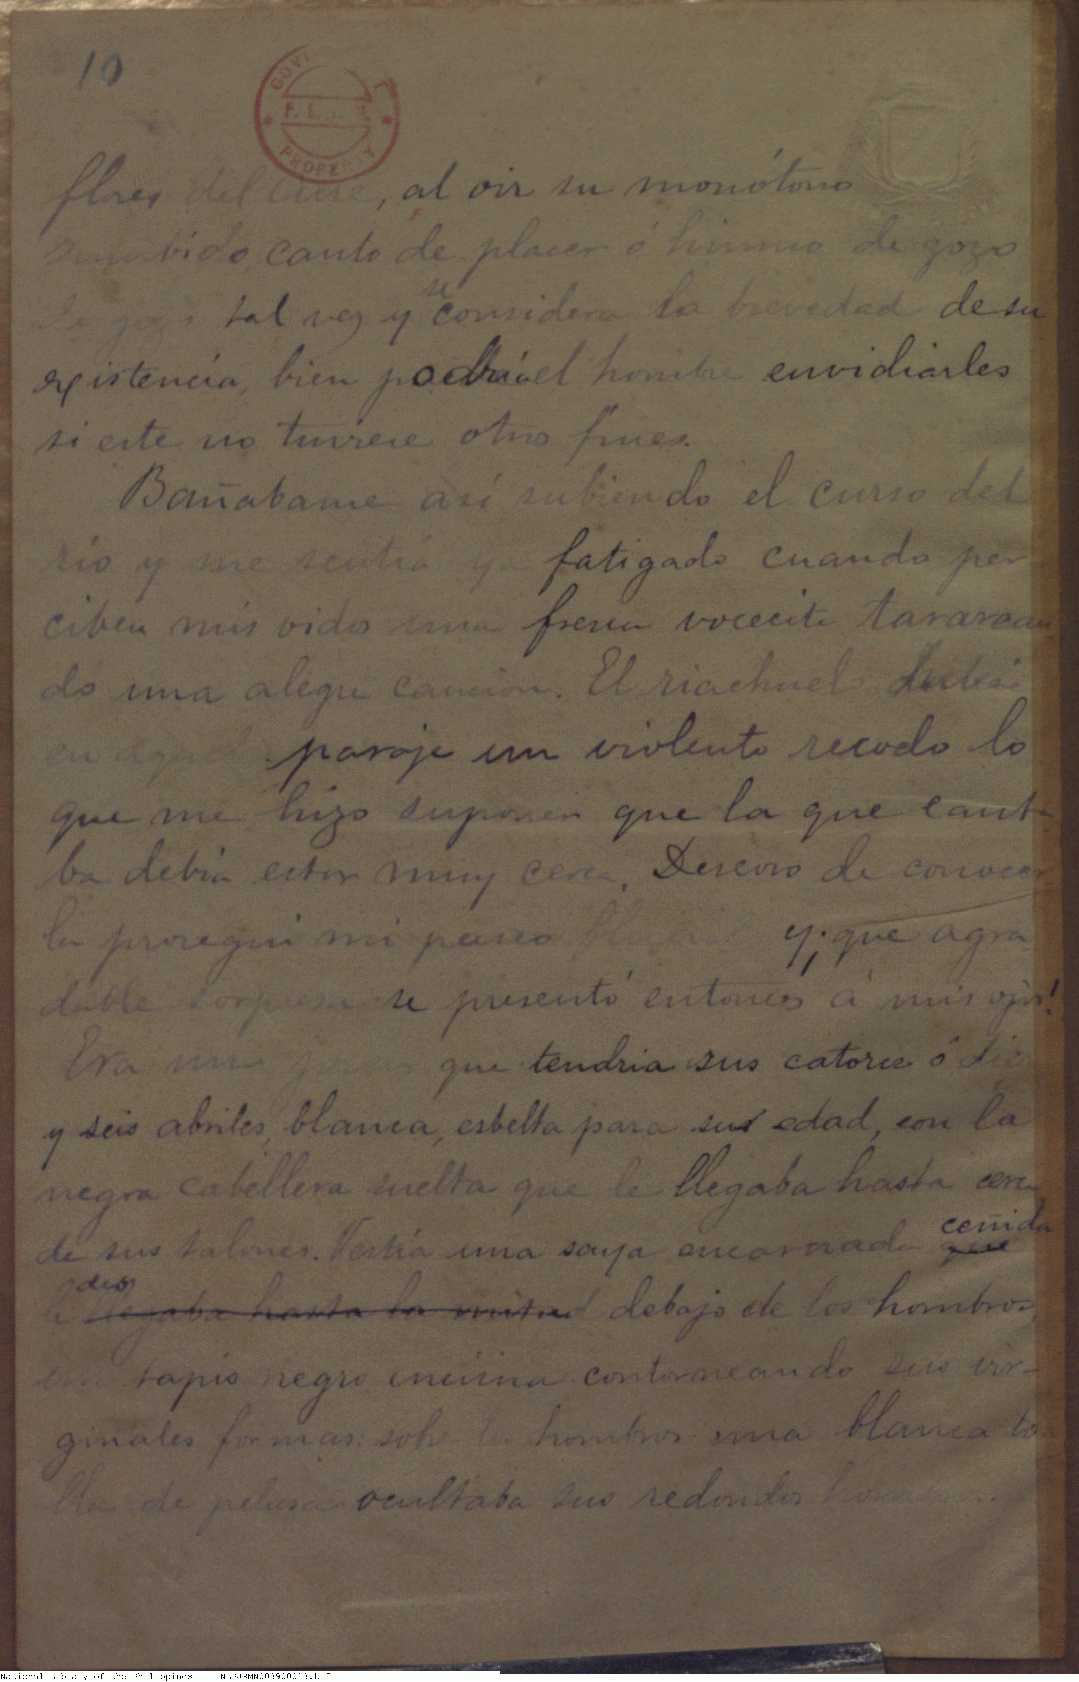 10
GOVT
PROPERTY
flores del aire, al oir su monótono
zumbido, canto de placer ó himno de gozo
tal vez y se considera la brevedad de su
existencia, bien podría el hombre envidiarles
si este no tuviese otros fines.
Bañabame así subiendo el curso del
río y me sentía ya fatigado cuando per
ciben mis oido una fresca vocecita tararean
do una alegre cancion. El riachuelo hacia
en aquel paraje un violento recodo lo
que me hizo suponer que la que canta
ba debia estar muy cerca. Deseoso de conocer
la proseguí mi paseo y ¡que agra
dable sorpresa se presentó entonces á mis ojos!
Era una joven que tendria sus catorce ó diez
y seis abriles, blanca, esbelta para su edad, con la
negra cabellera suelta que le llegaba hasta cerca
de sus talones. Vestía una saya encarnada ceñida
que
llegaba hasta la mitad debajo de los hombros,
un tapis negro encima contorneando sus vir-
ginales formas: sobre los hombros una blanca toa
lla de pelusa ocultaba sus redondos
National Library of the Philippines